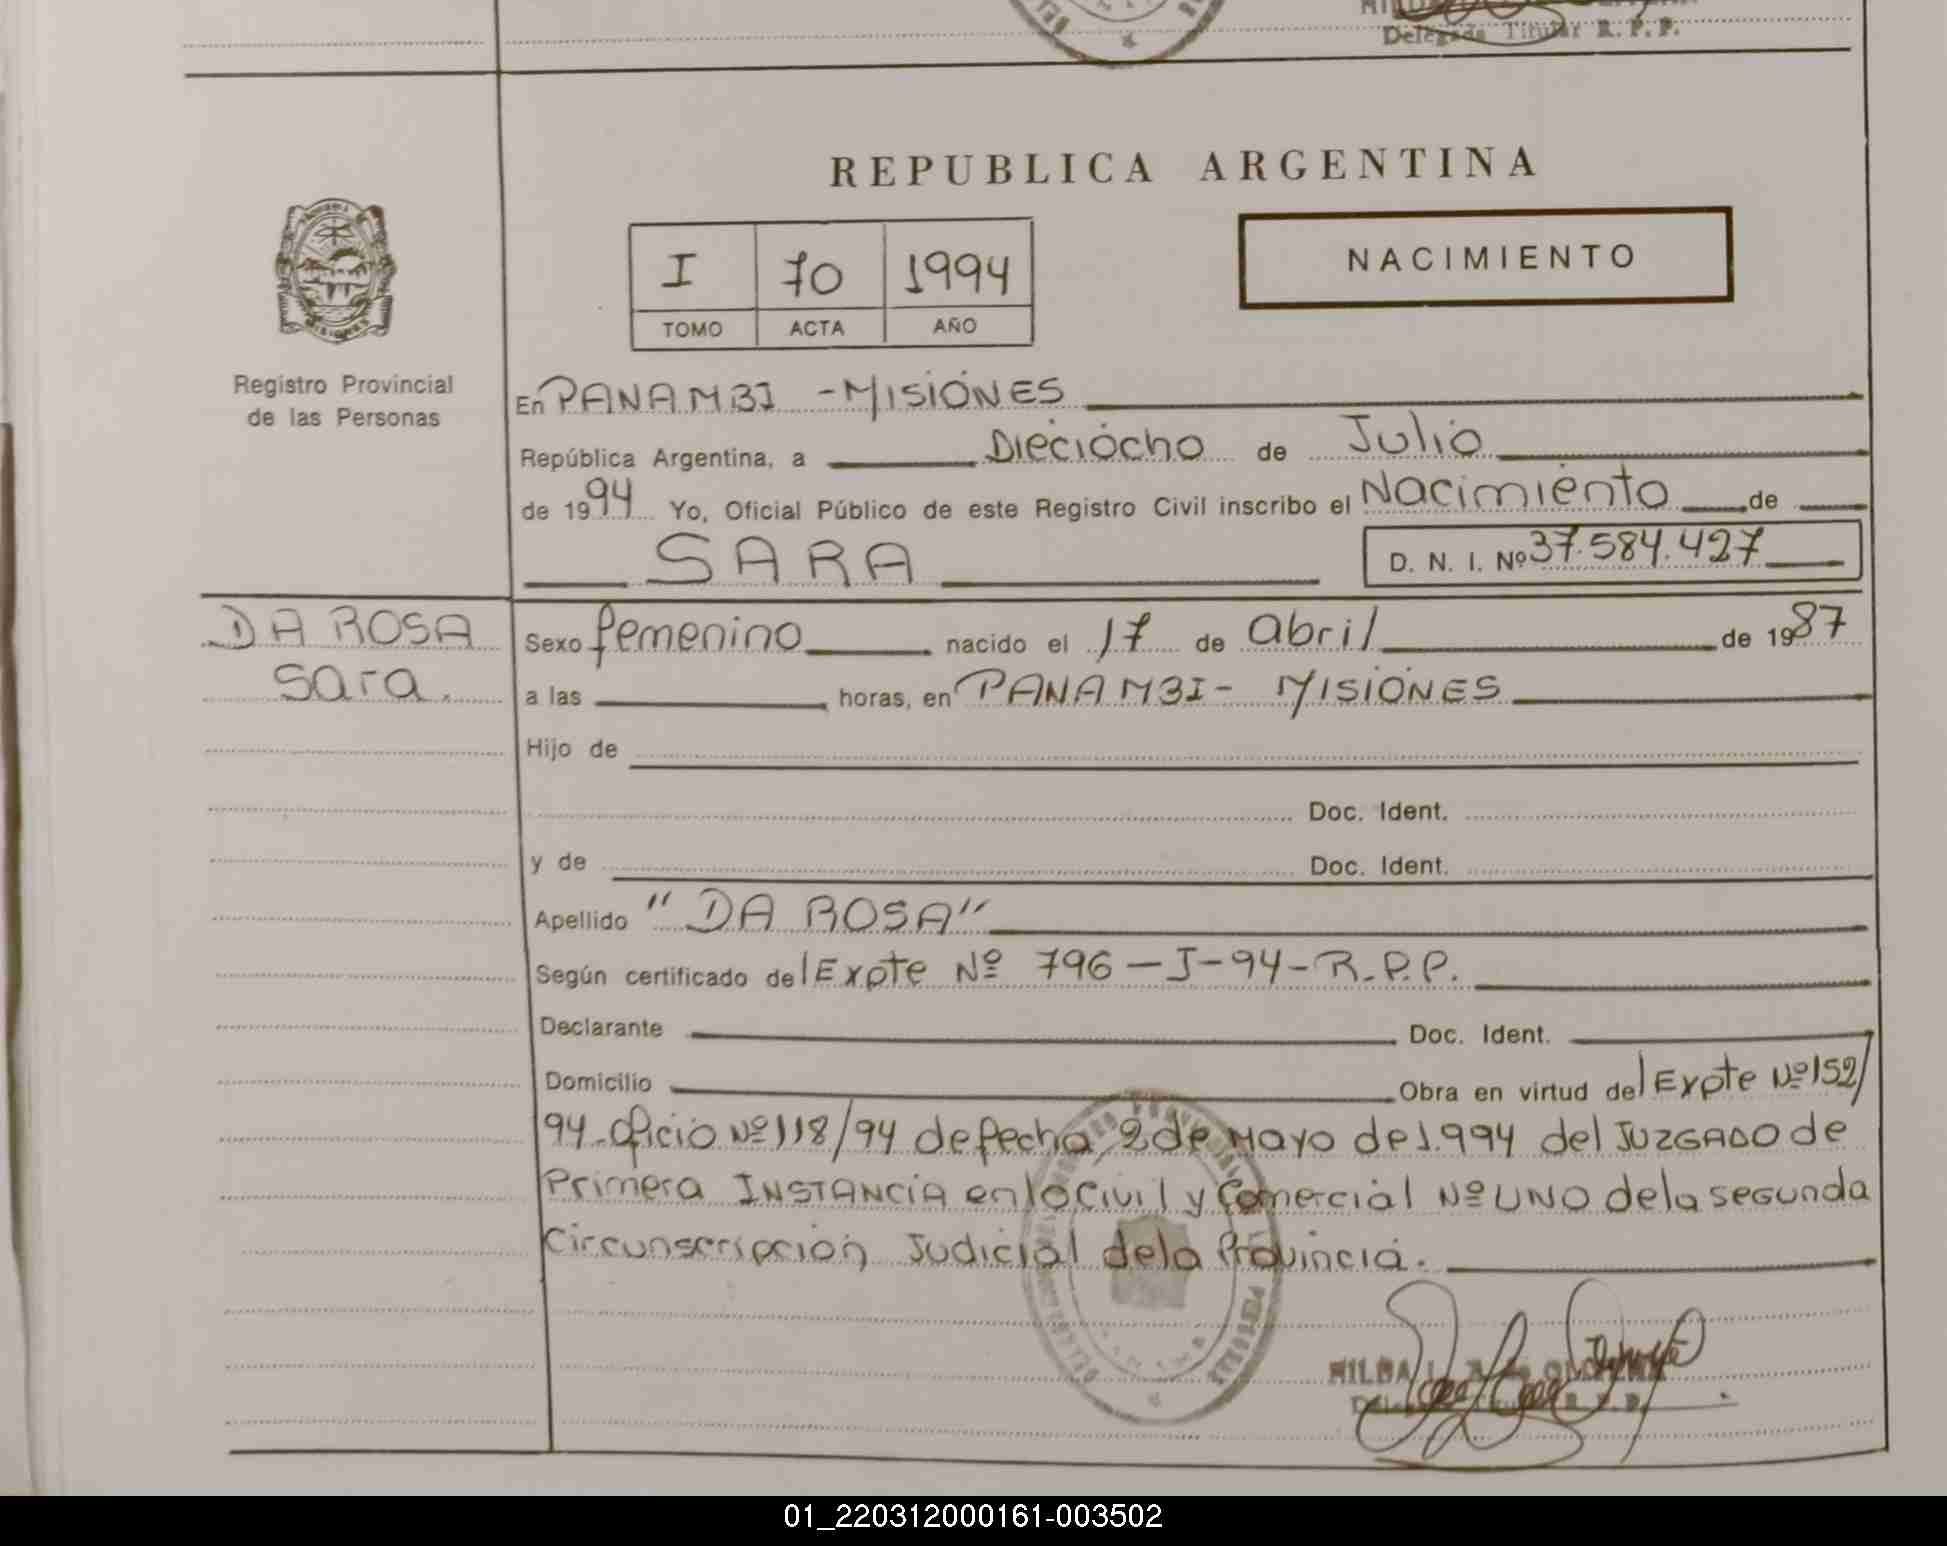 Delegada Titular R. P. P.
REPUBLICA ARGENTINA
I 70 1994
TOMO ACTA AÑO
NACIMIENTO
MISIONES
Registro Provincial
de las Personas
En PANAMBI - MISIONES
República Argentina, a Dieciocho de Julio
de 1994 Yo, Oficial Público de este Registro Civil inscribo el Nacimiento de
SARA D. N. I. Nº 37.584.427
DA ROSA
Sara.
Sexo femenino nacido el 17 de abril de 1987
a las horas, en PANAMBI - MISIONES
Hijo de
Doc. Ident.
y de Doc. Ident.
Apellido "DA ROSA"
Según certificado del Expte Nº 796 - J - 94 - R.P.P.
Declarante Doc. Ident.
Domicilio Obra en virtud del Expte Nº 152/
94 - Oficio Nº 118/94 de fecha 2 de Mayo de 1.994 del JUZGADO de
Primera INSTANCIA en lo Civil y Comercial Nº UNO de la segunda
Circunscripción Judicial de la Provincia.
HILDA
R. P. P.
01_220312000161-003502